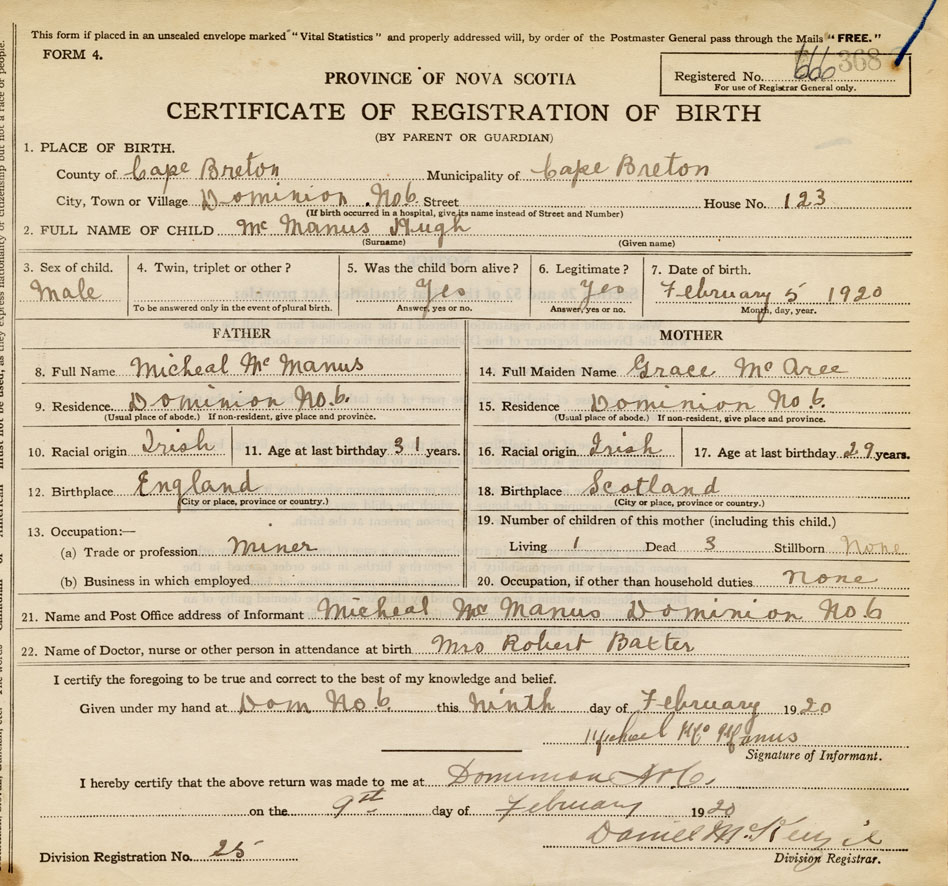 This form if placed in an unsealed envelope marked "Vital Statistics" and properly addressed will, by order of the Postmaster General pass through the Mails "FREE."
FORM 4.
Registered No. 368
For use of Registrar General only.
PROVINCE OF NOVA SCOTIA
CERTIFICATE OF REGISTRATION OF BIRTH
(BY PARENT OR GUARDIAN)
1. PLACE OF BIRTH.
County of Cape Breton Municipality of Cape Breton
City, Town or Village Dominion No 6. Street House No. 123
(If birth occurred in a hospital, give its name instead of Street and Number)
2. FULL NAME OF CHILD Mc Manus Hugh
(Surname) (Given name)
3. Sex of child. Male
4. Twin, triplet or other?
To be answered only in the event of plural birth.
5. Was the child born alive? Yes
Answer, yes or no.
6. Legitimate? Yes
Answer, yes or no.
7. Date of birth.
February 5 1920
Month, day, year.
FATHER
8. Full Name Micheal Mc Manus
9. Residence. Dominion No 6.
(Usual place of abode.) If non-resident, give place and province.
10. Racial origin Irish 11. Age at last birthday 31 years.
12. Birthplace England
(City or place, province or country.)
13. Occupation:—
(a) Trade or profession Miner
(b) Business in which employed
MOTHER
14. Full Maiden Name Grace Mc Aree
15. Residence Dominion No 6.
(Usual place of abode.) If non-resident, give place and province.
16. Racial origin Irish 17. Age at last birthday 29 years.
18. Birthplace Scotland
(City or place, province or country.)
19. Number of children of this mother (including this child.)
Living 1 Dead 3 Stillborn None
20. Occupation, if other than household duties. none
21. Name and Post Office address of Informant Micheal Mc Manus Dominion No 6
22. Name of Doctor, nurse or other person in attendance at birth Mrs Robert Baxter
I certify the foregoing to be true and correct to the best of my knowledge and belief.
Given under my hand at Dom No 6. this Ninth day of February 1920
Micheal Mc Manus
Signature of Informant.
I hereby certify that the above return was made to me at Dominion No 6.
on the 9th day of February 1920
Daniel McKenzie
Division Registrar.
Division Registration No. 25